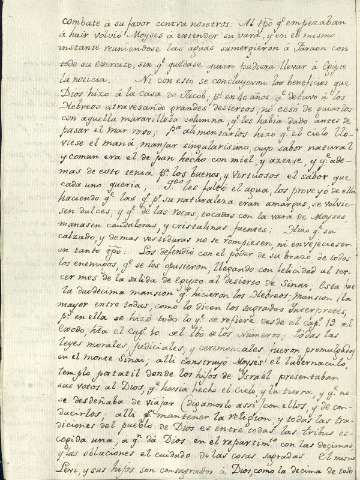 combate à su favor contra nosotros. Al tpõ q.e empezaban
à hair volvió Moyses à extender su vara, y en el mismo
instante reuniendose las aguas sumergieron à Faraon con
todo su exercito, sin q.e quedase quien pudiera llevar à Egypto
la noticia. Ni con esto se concluyeron los beneficios que
Dios hizo à la casa de Jacob, pues en 40 años q.e detuvo à los
Hebreos atravesando grandes desiertos, no cesó de guiarlos
con aquella maravillosa columna, q.e les habia dado antes de
pasar el mar roxo; p.a alimentarlos hizo q.e el cielo llo-
viese el maná manjar singularisimo, cuyo sabor natural
y comun era el de pan hecho con miel y azeyte, y q.e ade-
mas de esto tenia p.a los buenos, y virtuosos el sabor que
cada uno queria. Si les faltó el agua, los proveyó de ella
haciendo q.e las q.e p.r su naturaleza eran amargas, se volvie-
sen dulces, y q.e de las rocas, tocadas con la vara de Moyses
manasen caudalosas, y cristalinas fuentes. Hizo q.e su
calzado, y demas vestiduras no se rompiesen, ni envejeciesen
en tanto tpõ. Los defendió con el poder de su brazo de todos
los enemigos q.e se les opusieron, llegando con felicidad al ter-
cer mes de la salida de Egypto al desierto de Sinai. Esta fue
la duodecima mansion q.e hicieron los Hebreos: mansion la
mayor entre todas, como lo dicen los sagrados Interpretes,
p.s en ella se hizó todo lo q.e se refiere desde el cap. 19 del
Exodo hta el cap. 10 del libro de los Numeros; todas las
leyes morales judiciales, y ceremoniales fueron promulgadas
en el monte Sinai, alli construyó Moyses el tabernaculo,
templo portatil donde los hijos de Israel presentaban
sus votos al Dios, q.e havia hecho el cielo y la tierra, y q.e no
se desdeñaba de viajar (digamoslo así) con ellos, y de con-
ducirlos; alli p.a mantener la religion, y todas las tra-
diciones del pueblo de Dios es entre todas las tribus es-
cogida una, à q.n dá Dios en el repartim.to con las decimas
y las oblaciones el cuidado de las cosas sagradas. El mismo
Levi, y sus hijos son consagrados à Dios, como la decima de todo